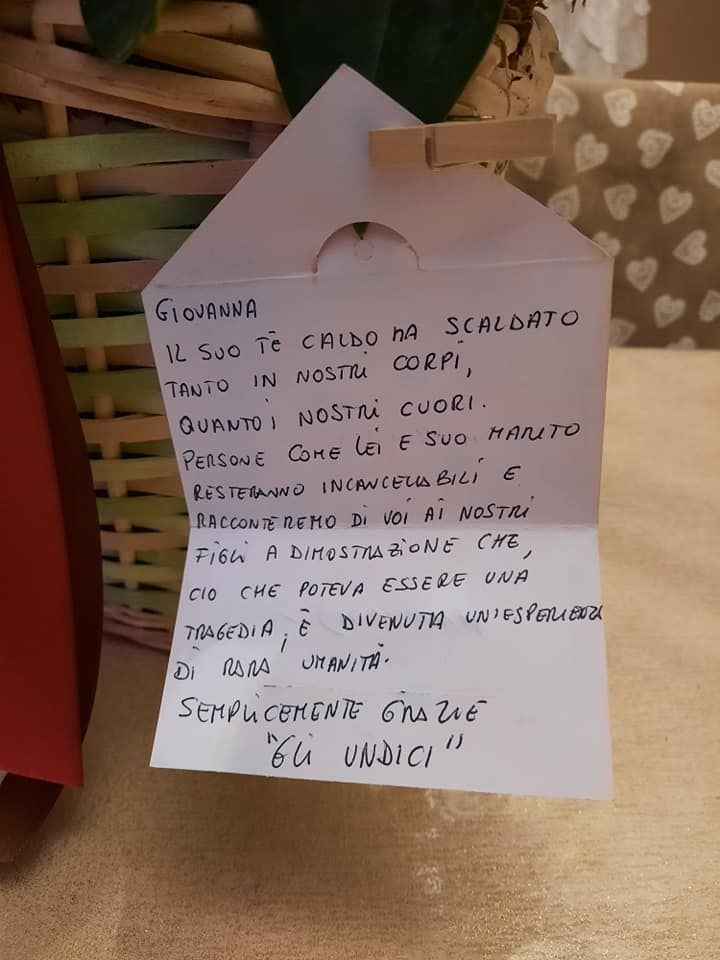 GIOVANNA
IL SUO TÈ CALDO HA SCALDATO
TANTO IN NOSTRI CORPI,
QUANTO I NOSTRI CUORI.
PERSONE COME LEI E SUO MARITO
RESTERANNO INCANCELLABILI E
RACCONTEREMO DI VOI AI NOSTRI
FIGLI A DIMOSTRAZIONE CHE,
CIO CHE POTEVA ESSERE UNA
TRAGEDIA, È DIVENUTA UN'ESPERIENZA
DI RARA UMANITÀ.
SEMPLICEMENTE GRAZIE
"GLI UNDICI"